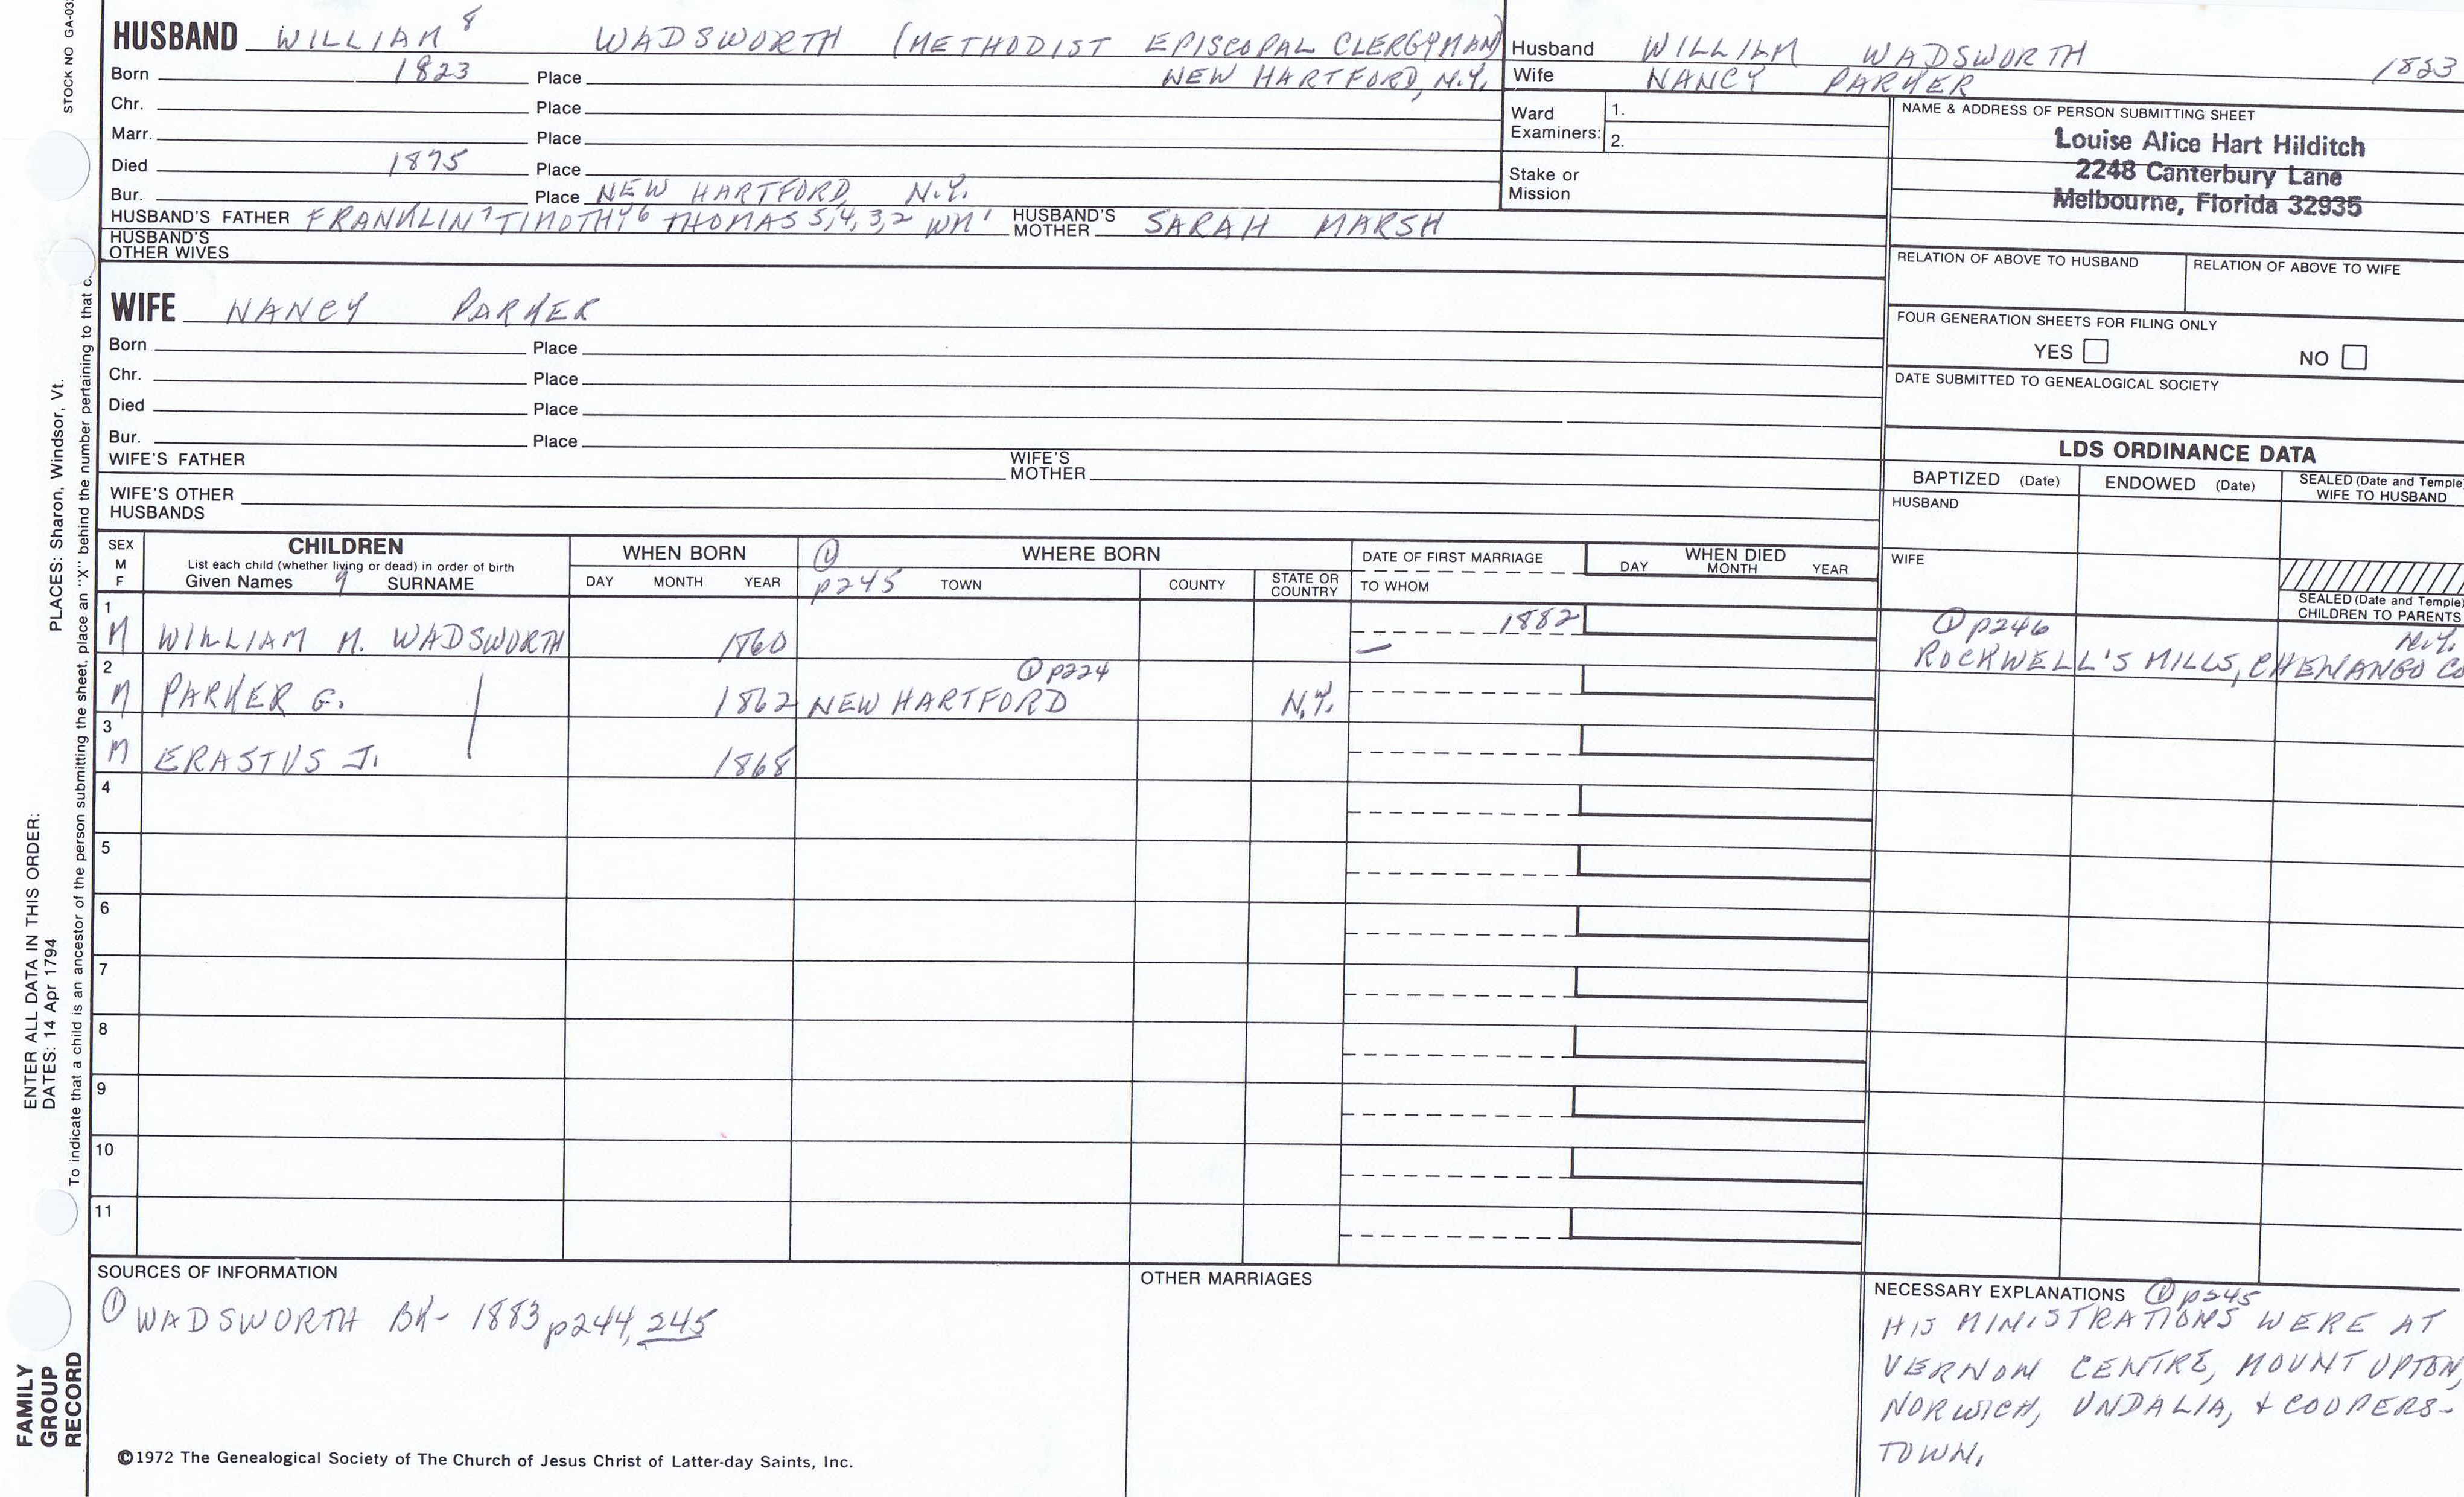 STOCK NO GA-03
HUSBAND WILLIAM 8 WADSWORTH (METHODIST EPISCOPAL CLERGYMAN)
Born 1823 Place NEW HARTFORD, N.Y.
Chr. Place
Marr. Place
Died 1875 Place
Bur. Place NEW HARTFORD, N.Y.
HUSBAND'S FATHER FRANKLIN 7 TIMOTHY 6 THOMAS 5,4,3,2 WM 1 HUSBAND'S MOTHER SARAH MARSH
HUSBAND'S
OTHER WIVES
Husband WILLIAM WADSWORTH 1823
Wife NANCY PARKER
Ward
Examiners: 1.
2.
Stake or
Mission
NAME & ADDRESS OF PERSON SUBMITTING SHEET
Louise Alice Hart Hilditch
2248 Canterbury Lane
Melbourne, Florida 32935
RELATION OF ABOVE TO HUSBAND RELATION OF ABOVE TO WIFE
FOUR GENERATION SHEETS FOR FILING ONLY
YES NO
DATE SUBMITTED TO GENEALOGICAL SOCIETY
WIFE NANCY PARKER
Born Place
Chr. Place
Died Place
Bur. Place
WIFE'S FATHER WIFE'S MOTHER
WIFE'S OTHER
HUSBANDS
LDS ORDINANCE DATA
BAPTIZED (Date) ENDOWED (Date) SEALED (Date and Temple)
WIFE TO HUSBAND
HUSBAND
WIFE
SEALED (Date and Temple)
CHILDREN TO PARENTS
SEX
M
F
CHILDREN
List each child (whether living or dead) in order of birth
Given Names 9 SURNAME
WHEN BORN
DAY MONTH YEAR
① WHERE BORN
p245 TOWN COUNTY STATE OR COUNTRY
DATE OF FIRST MARRIAGE
TO WHOM
WHEN DIED
DAY MONTH YEAR
1 M WILLIAM M. WADSWORTH 1860 1882 —
① p246 N.Y.
ROCKWELL'S MILLS, CHENANGO CO
2 M PARKER G. 1862 NEW HARTFORD ① p224 N.Y.
3 M ERASTUS J. 1868
4
5
6
7
8
9
10
11
SOURCES OF INFORMATION
① WADSWORTH BK- 1883 p244, 245
OTHER MARRIAGES
NECESSARY EXPLANATIONS ① p245
HIS MINISTRATIONS WERE AT
VERNON CENTRE, MOUNT UPTON,
NORWICH, UNDALIA, & COOPERS-
TOWN.
©1972 The Genealogical Society of The Church of Jesus Christ of Latter-day Saints, Inc.
FAMILY
GROUP
RECORD
ENTER ALL DATA IN THIS ORDER:
DATES: 14 Apr 1794
PLACES: Sharon, Windsor, Vt.
To indicate that a child is an ancestor of the person submitting the sheet, place an "X" behind the number pertaining to that c